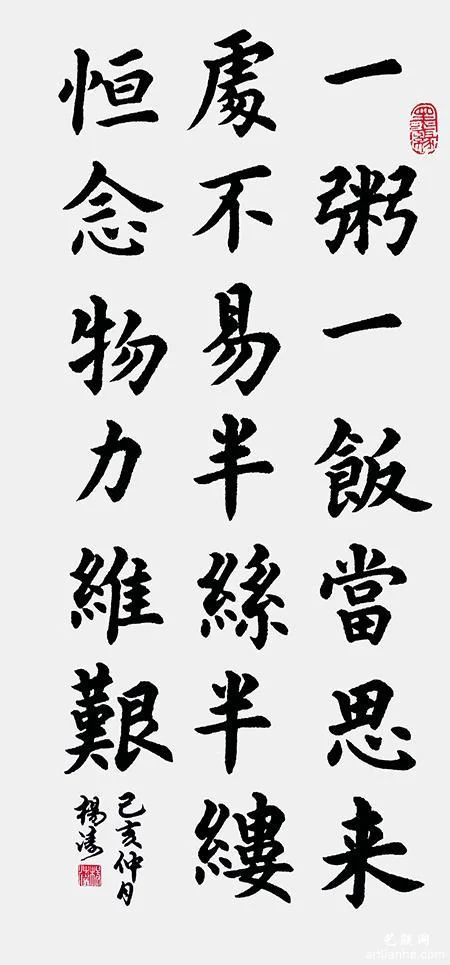 一粥一飯當思来
處不易半絲半縷
恒念物力維艱
己亥仲月
楊濤
艺联网